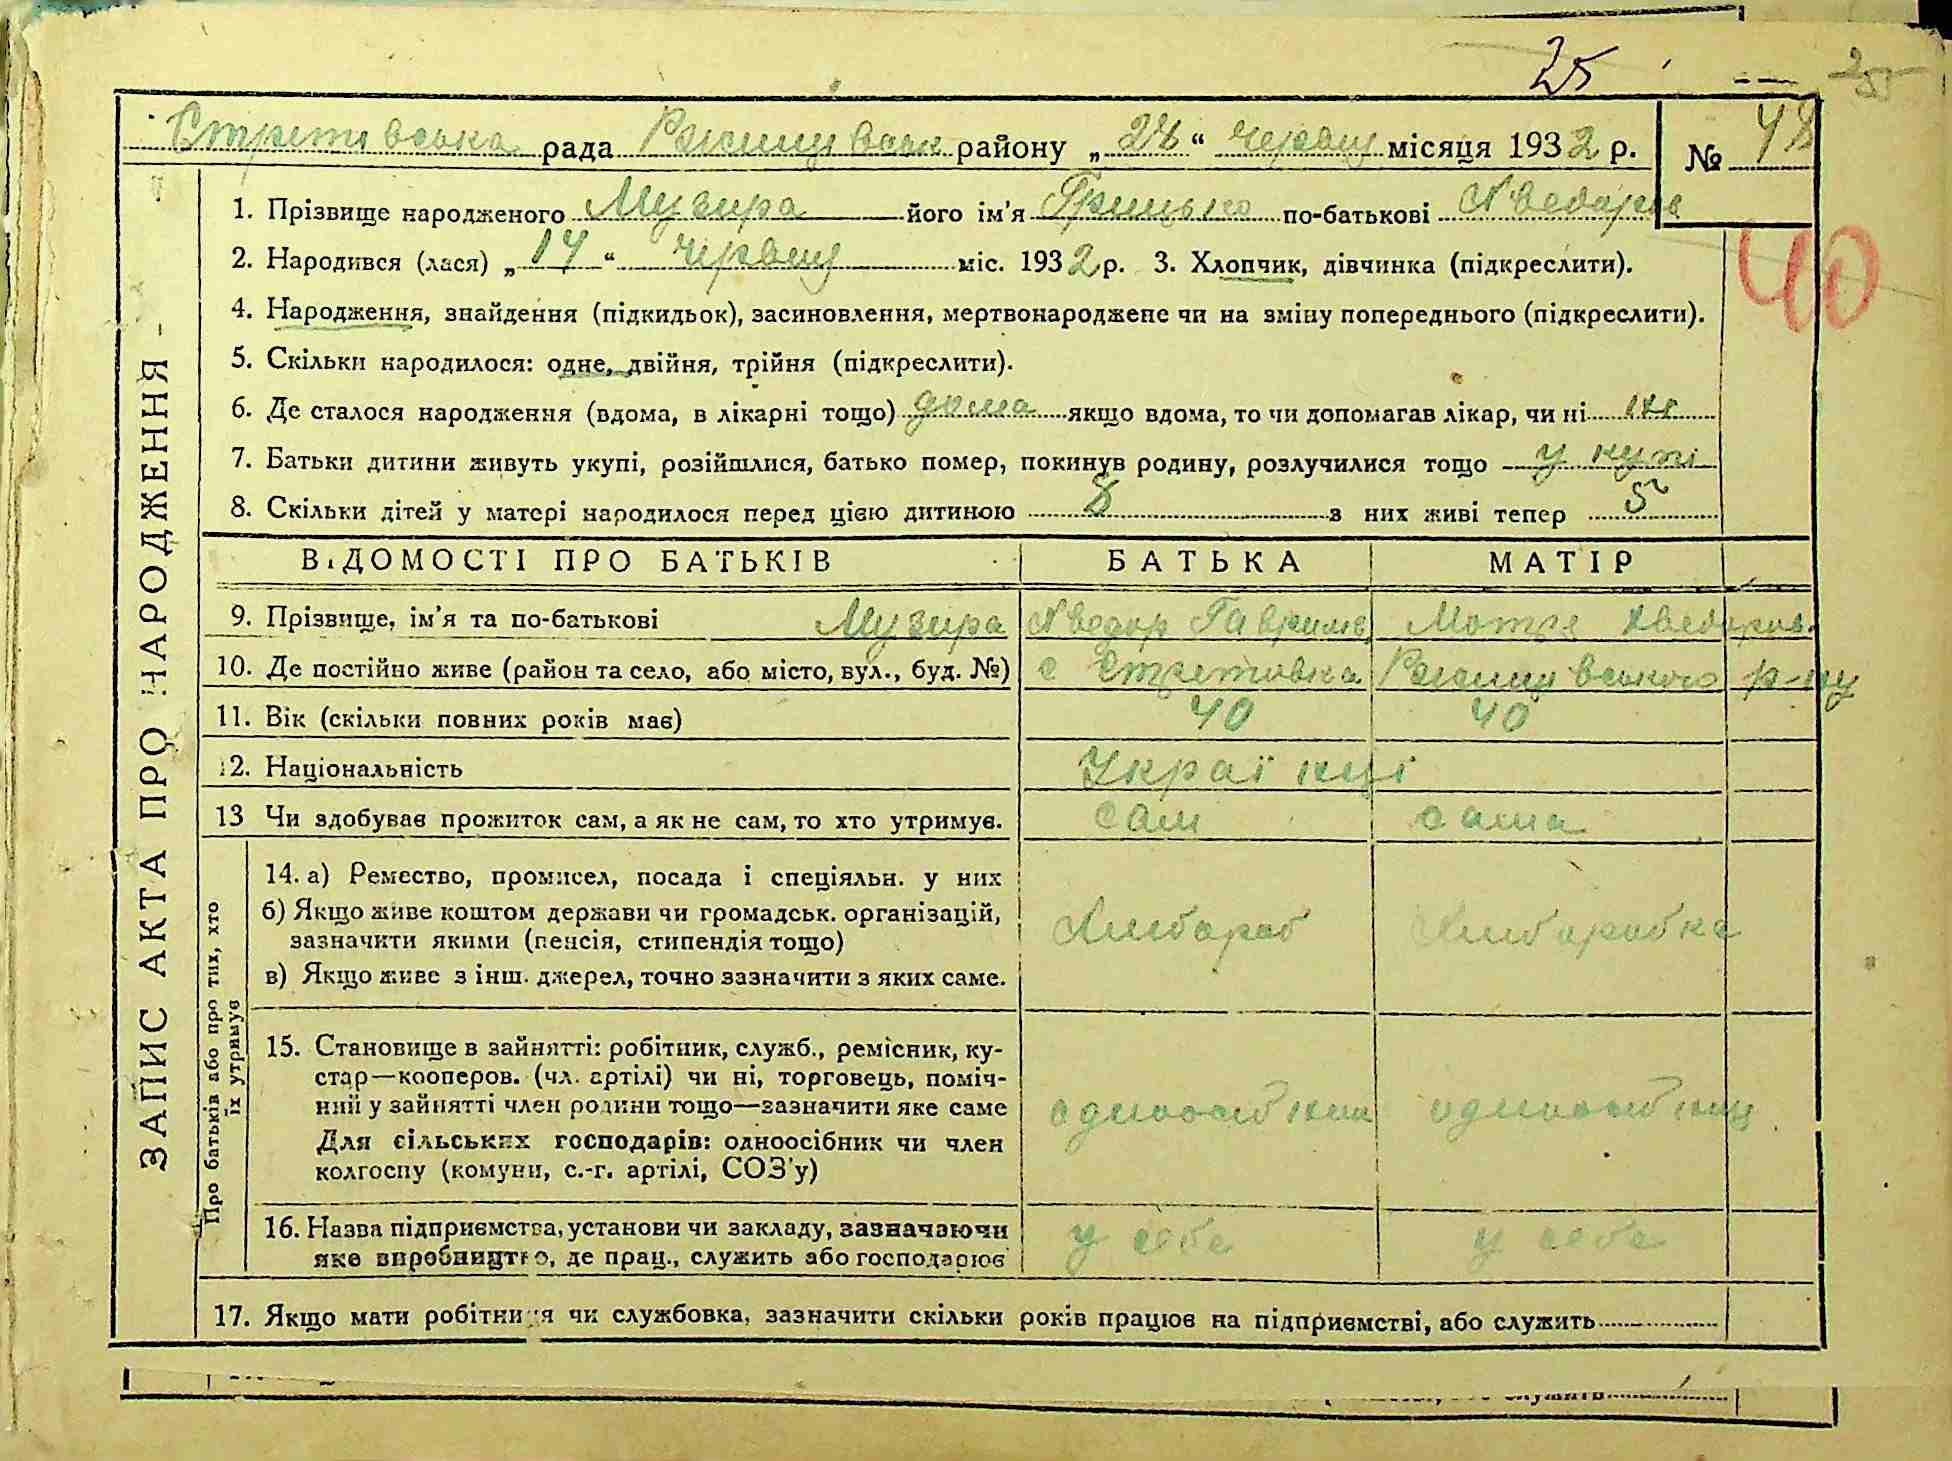 25
255
Стритовська рада Ржищівськ району „28“ червня місяця 1932 р. № 48
1. Прізвище народженого Музира його ім'я Грицько по-батькові Хведоров
40
2. Народився (лася) „14“ червня міс. 1932 р. 3. Хлопчик, дівчинка (підкреслити).
4. Народження, знайдення (підкидьок), засиновлення, мертвонароджене чи на зміну попереднього (підкреслити).
5. Скільки народилося: одне, двійня, трійня (підкреслити).
6. Де сталося народження (вдома, в лікарні тощо) дома якщо вдома, то чи допомагав лікар, чи ні ні
7. Батьки дитини живуть укупі, розійшлися, батько помер, покинув родину, розлучилися тощо у купі
8. Скільки дітей у матері народилося перед цією дитиною 8 з них живі тепер 5
ВІДОМОСТІ ПРО БАТЬКІВ БАТЬКА МАТІР
9. Прізвище, ім'я та по-батькові Музира Хводор Гаврилов Мотря Хведоров.
10. Де постійно живе (район та село, або місто, вул., буд. №) с Стритовка Ржищівського р-ну
11. Вік (скільки повних років має) 40 40
12. Національність Українці
13 Чи здобуває прожиток сам, а як не сам, то хто утримує. сам сама
14. а) Ремество, промисел, посада і спеціяльн. у них
б) Якщо живе коштом держави чи громадськ. організацій,
зазначити якими (пенсія, стипендія тощо) Хлібороб Хліборобка
в) Якщо живе з інш. джерел, точно зазначити з яких саме.
15. Становище в зайнятті: робітник, служб., ремісник, ку-
стар—кооперов. (чл. артілі) чи ні, торговець, поміч-
ний у зайнятті член родини тощо—зазначити яке саме одноосібник одноосібниц
Для сільських господарів: одноосібник чи член
колгоспу (комуни, с.-г. артілі, СОЗ'у)
16. Назва підприємства, установи чи закладу, зазначаючи
яке виробництво, де прац., служить або господарює у себе у себе
17. Якщо мати робітниця чи службовка, зазначити скільки років працює на підприємстві, або служить
ЗАПИС АКТА ПРО НАРОДЖЕННЯ
Про батьків або про тих, хто
їх утримує
служить